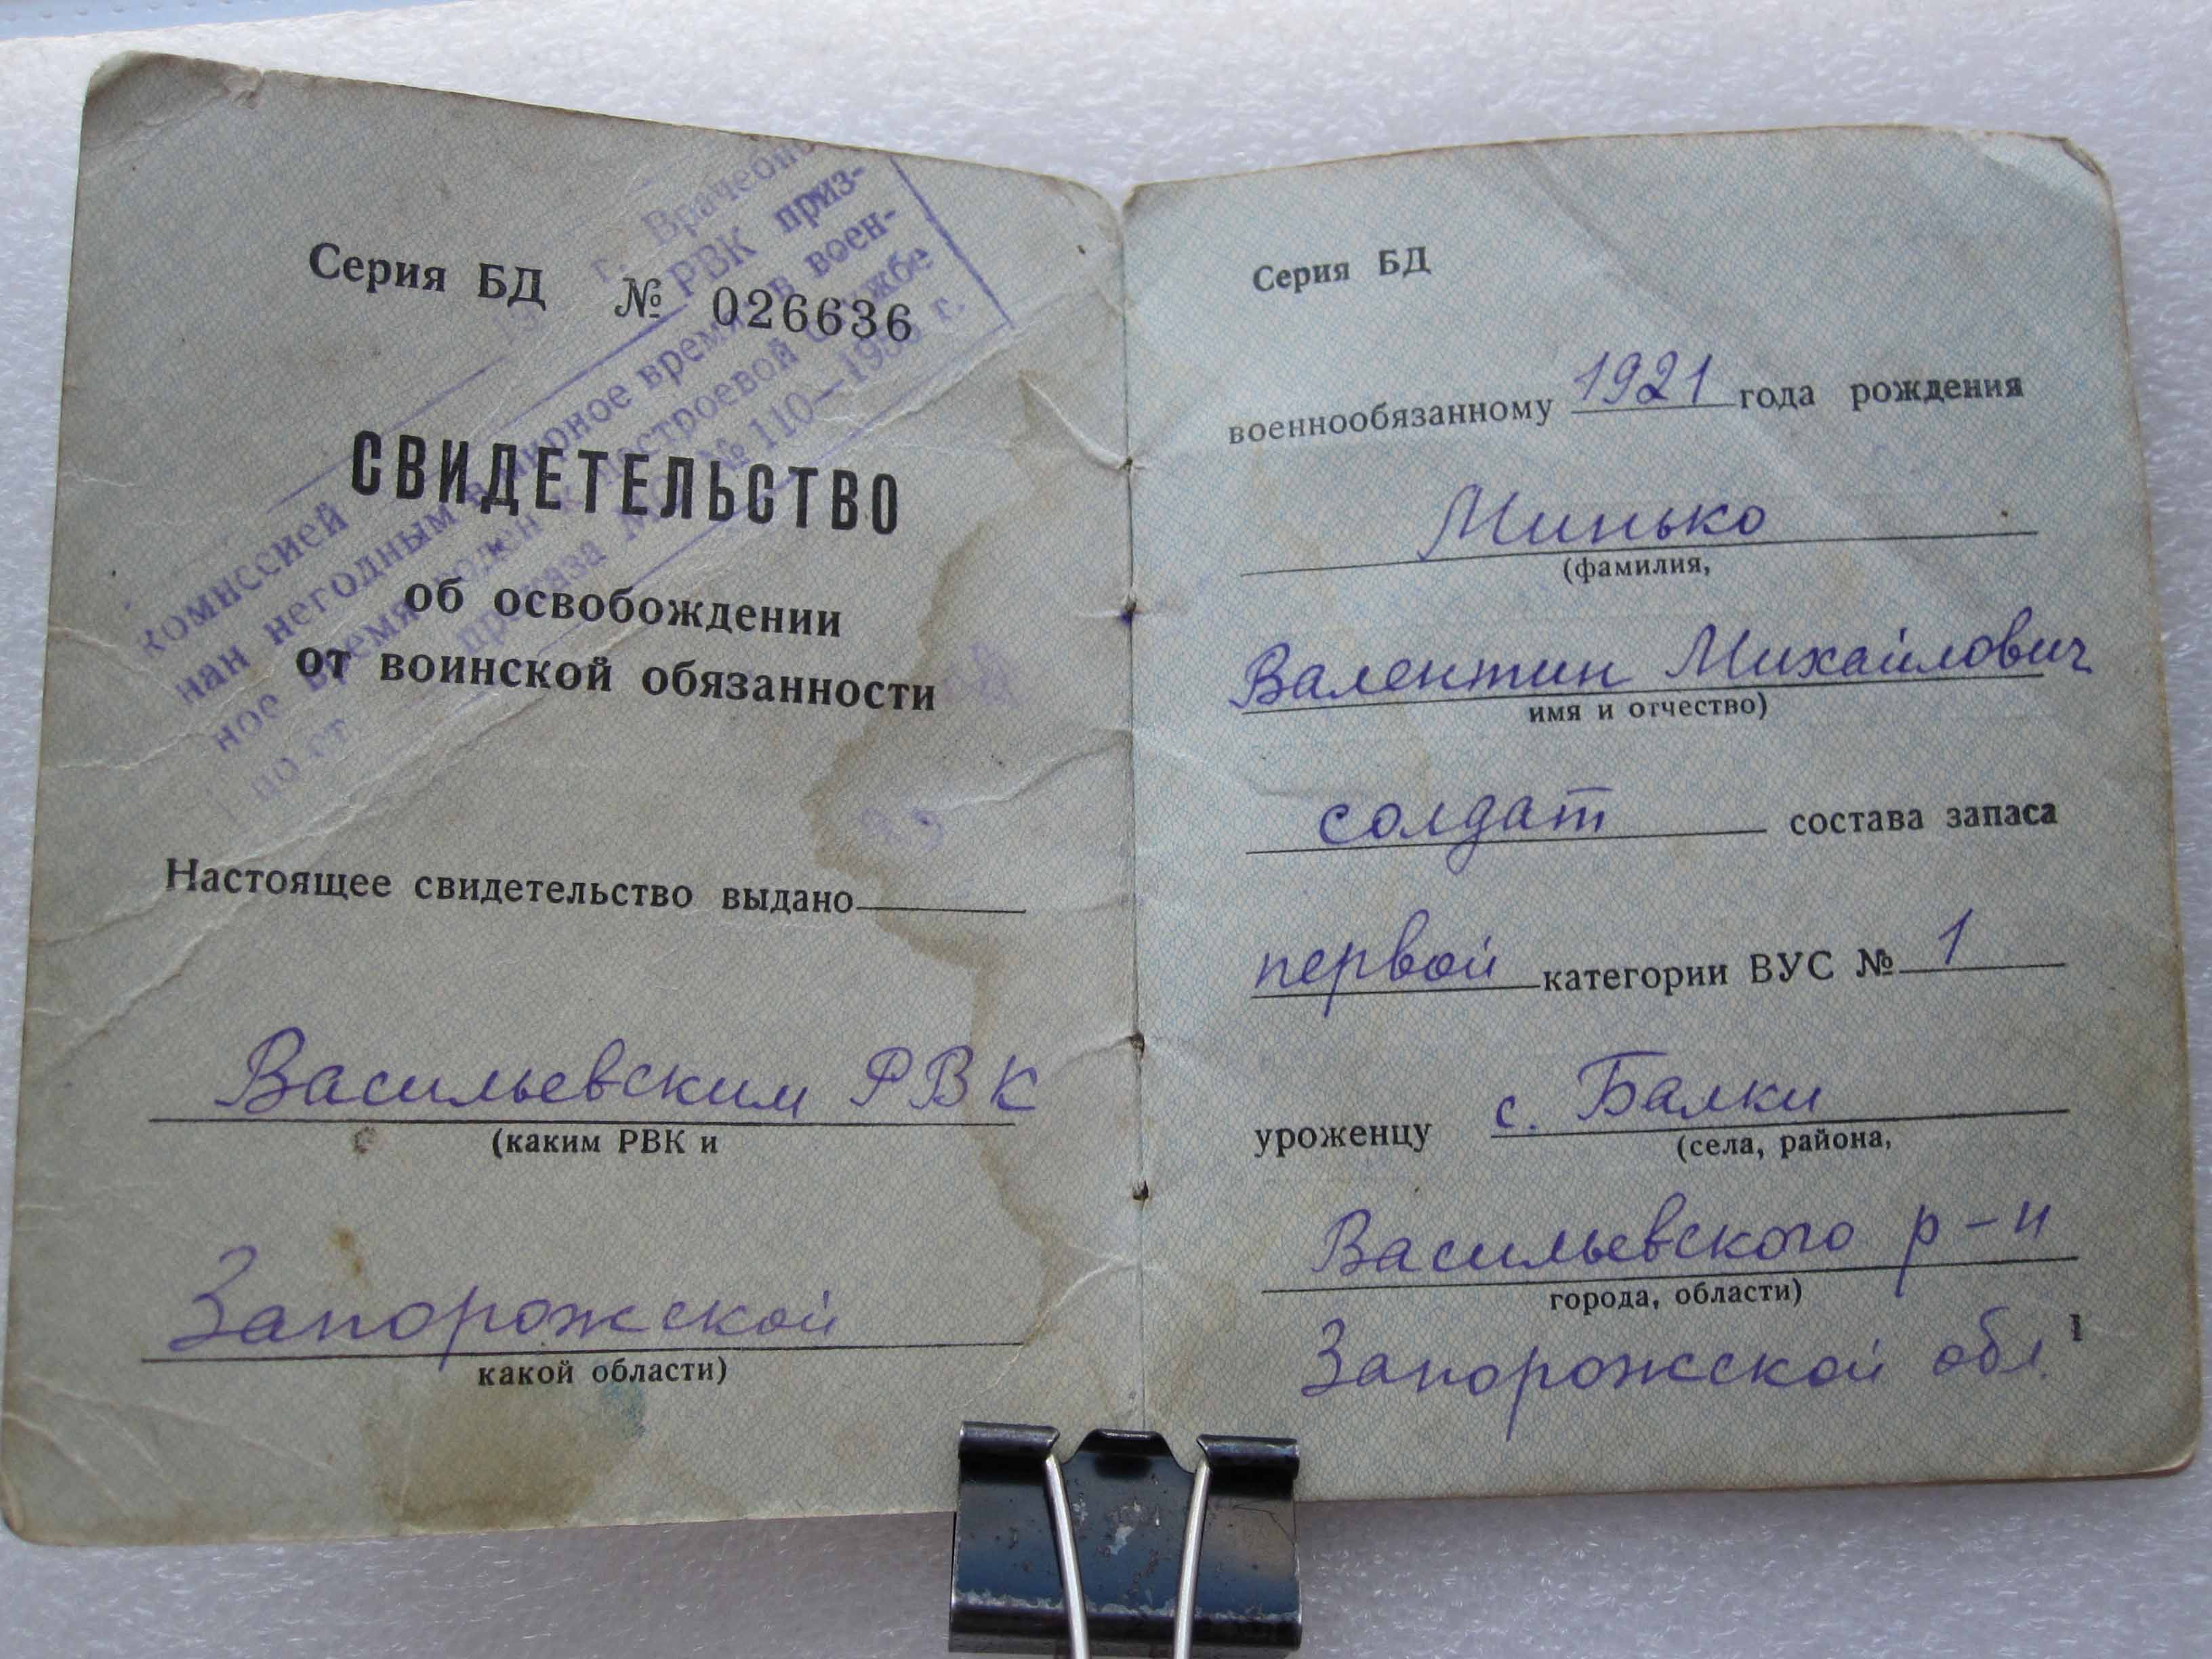 Серия БД № 026636
СВИДЕТЕЛЬСТВО
об освобождении
от воинской обязанности
Настоящее свидетельство выдано
Васильевским РВК
(каким РВК и
Запорожской
какой области)
г. Врачебн
комиссией РВК приз-
нан негодным в мирное время, в воен-
ное время годен к нестроевой службе
по ст. приказа № 110— г.
Серия БД
военнообязанному 1921 года рождения
Минько
(фамилия,
Валентин Михайлович
имя и отчество)
солдат состава запаса
первой категории ВУС № 1
уроженцу с. Балки
(села, района,
Васильевского р-н
города, области)
Запорожской обл.
1